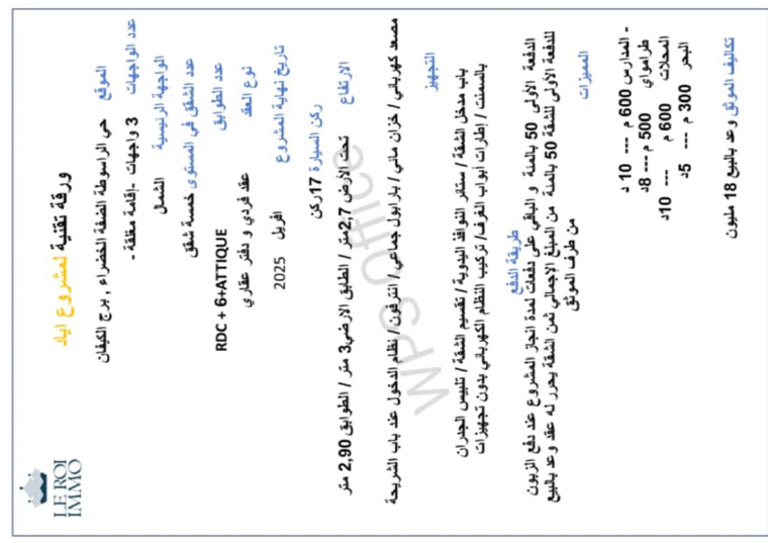 LE ROI
IMMO
ورقة تقنية لمشروع اياد
الموقع حي الراسوطة الضفة الخضراء , برج الكيفان
عدد الواجهات 3 واجهات -إقامة مغلقة -
الواجهة الرئيسية الشمال
عدد الشقق في المستوى خمسة شقق
عدد الطوابق RDC + 6+ATTIQUE
نوع العقد عقد فردي و دفتر عقاري
تاريخ نهاية المشروع افريل 2025
ركن السيارة 17ركن
الارتفاع تحت الأرض 2,7متر / الطابق الارضي3 متر / الطوابق 2,90 متر
مصعد كهربائي / خزان مائي / بارابول جماعي / انترفون / نظام الدخول عند باب الشريحة
التجهيز
باب مدخل الشقة / ستائر النوافذ اليدوية / تقسيم الشقة / تلبيس الجدران
بالسمنت / إطارات أبواب الغرف/ تركيب النظام الكهربائي بدون تجهيزات
طريقة الدفع
الدفعة الأولى 50 بالمئة و الباقي على دفعات لمدة انجاز المشروع عند دفع الزبون
للدفعة الأولى للشقة 50 بالمئة من المبلغ الاجمالي ثمن الشقة يحرر له عقد وعد بالبيع
من طرف الموثق
المميزات
- المدارس 600 م --- 10 د
طرامواي 500 م --- 8د
المحلات 600 م --- 10د
البحر 300 م --- 5د
تكاليف الموثق وعد بالبيع 18 مليون
WPS Office